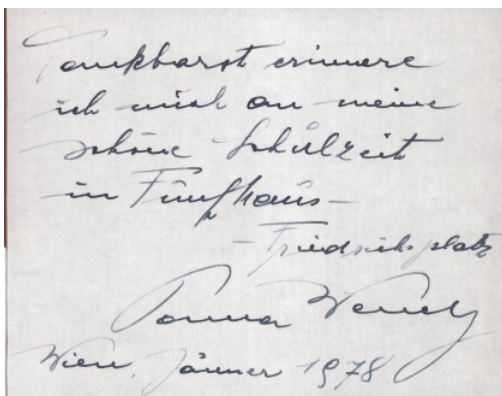 Dankbarst erinnere
ich mich an meine
schöne Schulzeit
in Fünfhaus –
– Friedrichsplatz
Paula Wessely
Wien, Jänner 1978